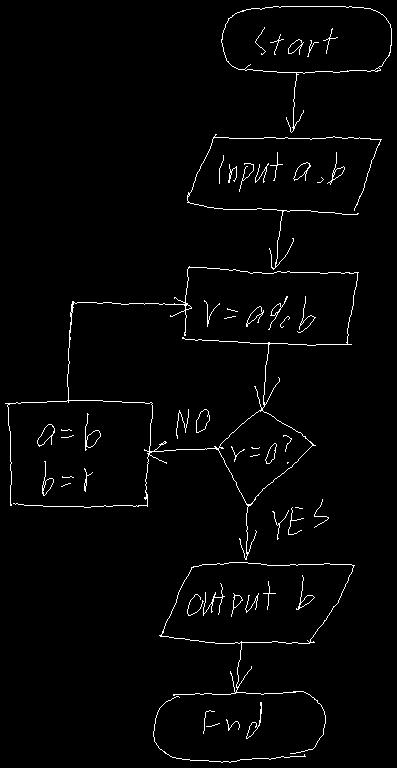 Start
Input a,b
r=a%b
r=0?
NO
a=b
b=r
YES
output b
End